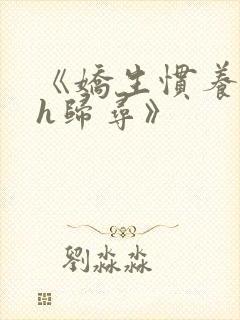 《嬌生慣養
h歸尋》
劉淼淼